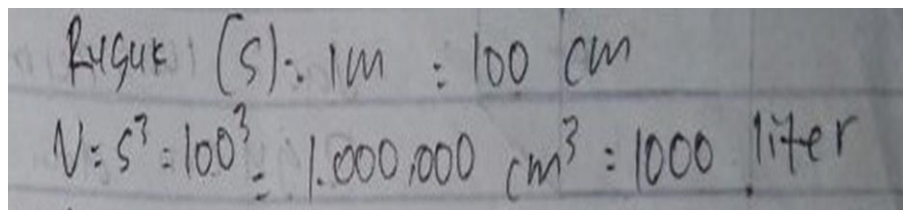 Rusuk (S) = 1m = 100 cm
V = S³ = 100³ = 1.000.000 cm³ = 1000 liter